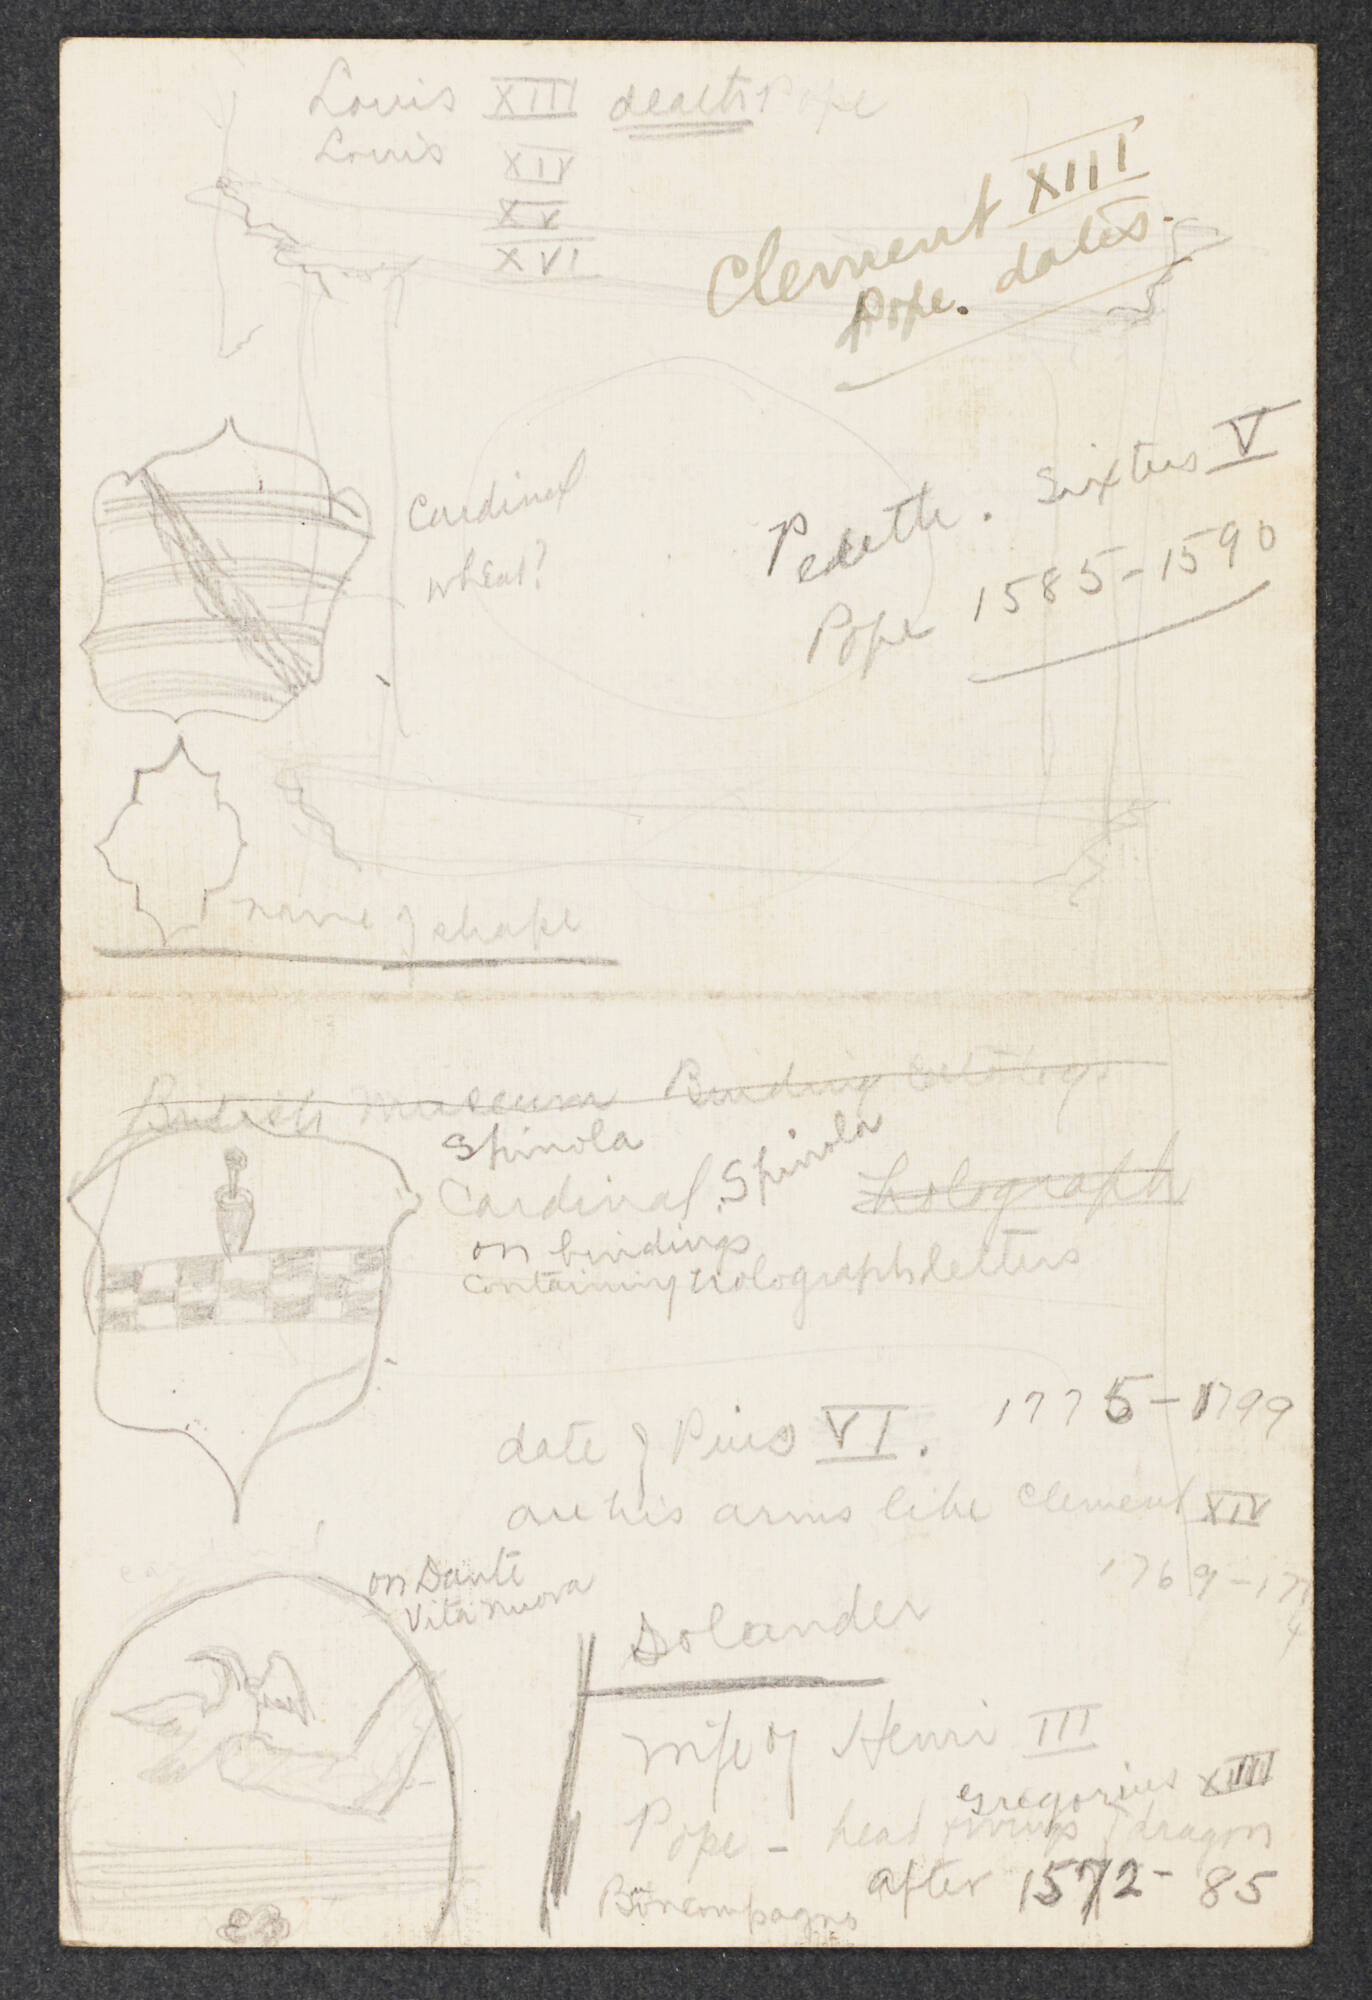 Louis XIII death Pope
Louis XIV
XV
XVI
Clement XIII
Pope. dates.
Cardinal
what?
Peretti. Sixtus V
Pope 1585-1590
name of shape
British Museum Binding Catalogs
Spinola
Cardinal Spinola
holograph
on bindings
containing holograph letters
date of Pius VI. 1775-1799
are his arms like Clement XIV
1769-1774
on Dante
Vita Nuova
Solander
wife of Henri III
Gregorius XIII
Pope - head wings of dragon
after 1572-85
Boncompagno